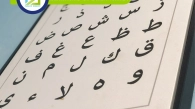 ز س ش ص ض
ط ظ ع غ ف
ق ك ل م ن
و ه لا ء ي